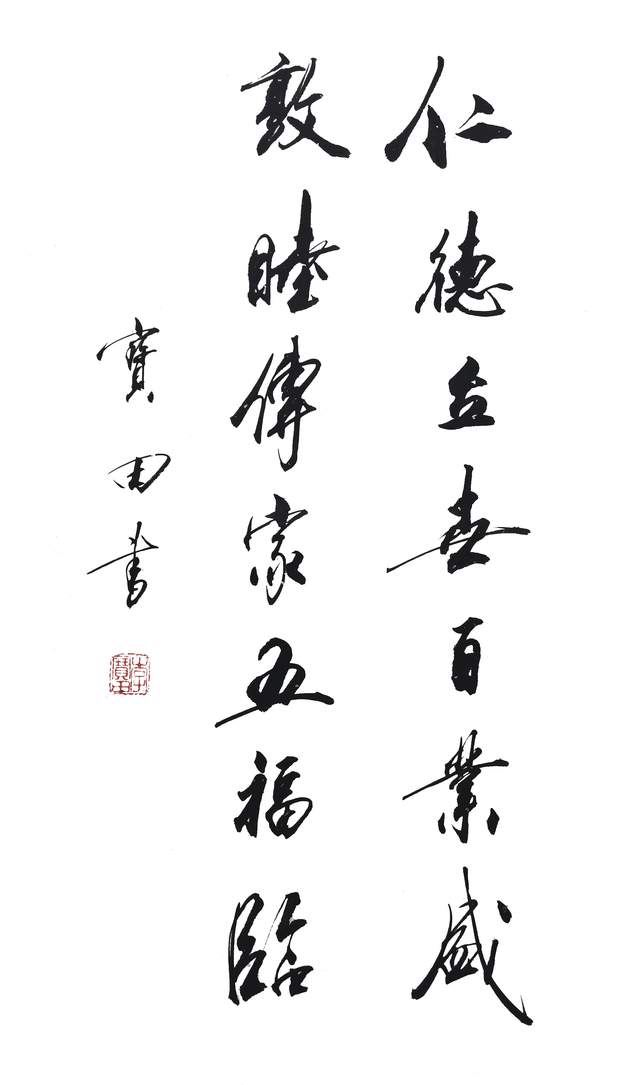 仁德立百業盛
敦睦傳家五福臨
寶田書
李寶田